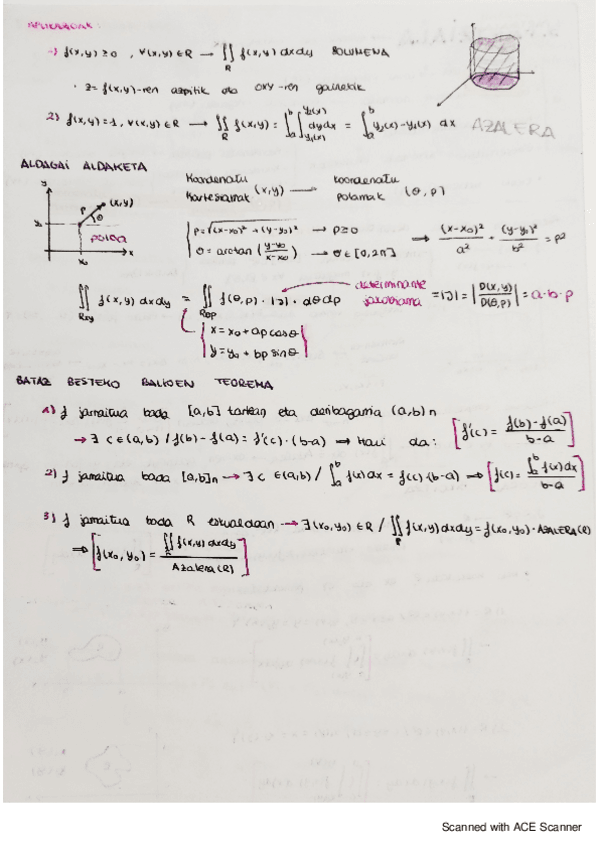 APLIKAZIOAK:
1) f(x,y) ≥ 0 , ∀(x,y) ∈ R → ∬_R f(x,y) dxdy BOLUMENA
· z = f(x,y)-ren azpitik eta OXY-ren gainetik
2) f(x,y) = 1 , ∀(x,y) ∈ R → ∬_R f(x,y) = ∫_a^b ∫_{y₁(x)}^{y₂(x)} dydx = ∫_a^b y₂(x) - y₁(x) dx AZALERA
ALDAGAI ALDAKETA
y
(x,y)
ρ
θ
y₀
poloa
x₀
x
Koordenatu kartesiarrak (x,y) → koordenatu polarrak (θ, ρ)
ρ = √((x-x₀)² + (y-y₀)²) → ρ ≥ 0
θ = arctan((y-y₀)/(x-x₀)) → θ ∈ [0, 2π]
⇒ (x-x₀)²/a² + (y-y₀)²/b² = ρ²
∬_{Rxy} f(x,y) dxdy = ∬_{Rθρ} f(θ, ρ) · |J| · dθdρ
determinante jacobiarra = |J| = |D(x,y)/D(θ,ρ)| = a·b·ρ
x = x₀ + aρ cosθ
y = y₀ + bρ sinθ
BATAZ BESTEKO BALIOEN TEOREMA
1) f jarraitua bada [a,b] tartean eta deribagarria (a,b)n
→ ∃ c ∈ (a,b) / f(b) - f(a) = f'(c) · (b-a) ⇒ Hau da: [f'(c) = (f(b) - f(a))/(b-a)]
2) f jarraitua bada [a,b]n → ∃ c ∈ (a,b) / ∫_a^b f(x) dx = f(c) · (b-a) ⇒ [f(c) = ∫_a^b f(x) dx/(b-a)]
3) f jarraitua bada R eskualdean → ∃ (x₀, y₀) ∈ R / ∬_R f(x,y) dxdy = f(x₀, y₀) · AZALERA(R)
⇒ [f(x₀, y₀) = ∬ f(x,y) dxdy / Azalera(R)]
Scanned with ACE Scanner